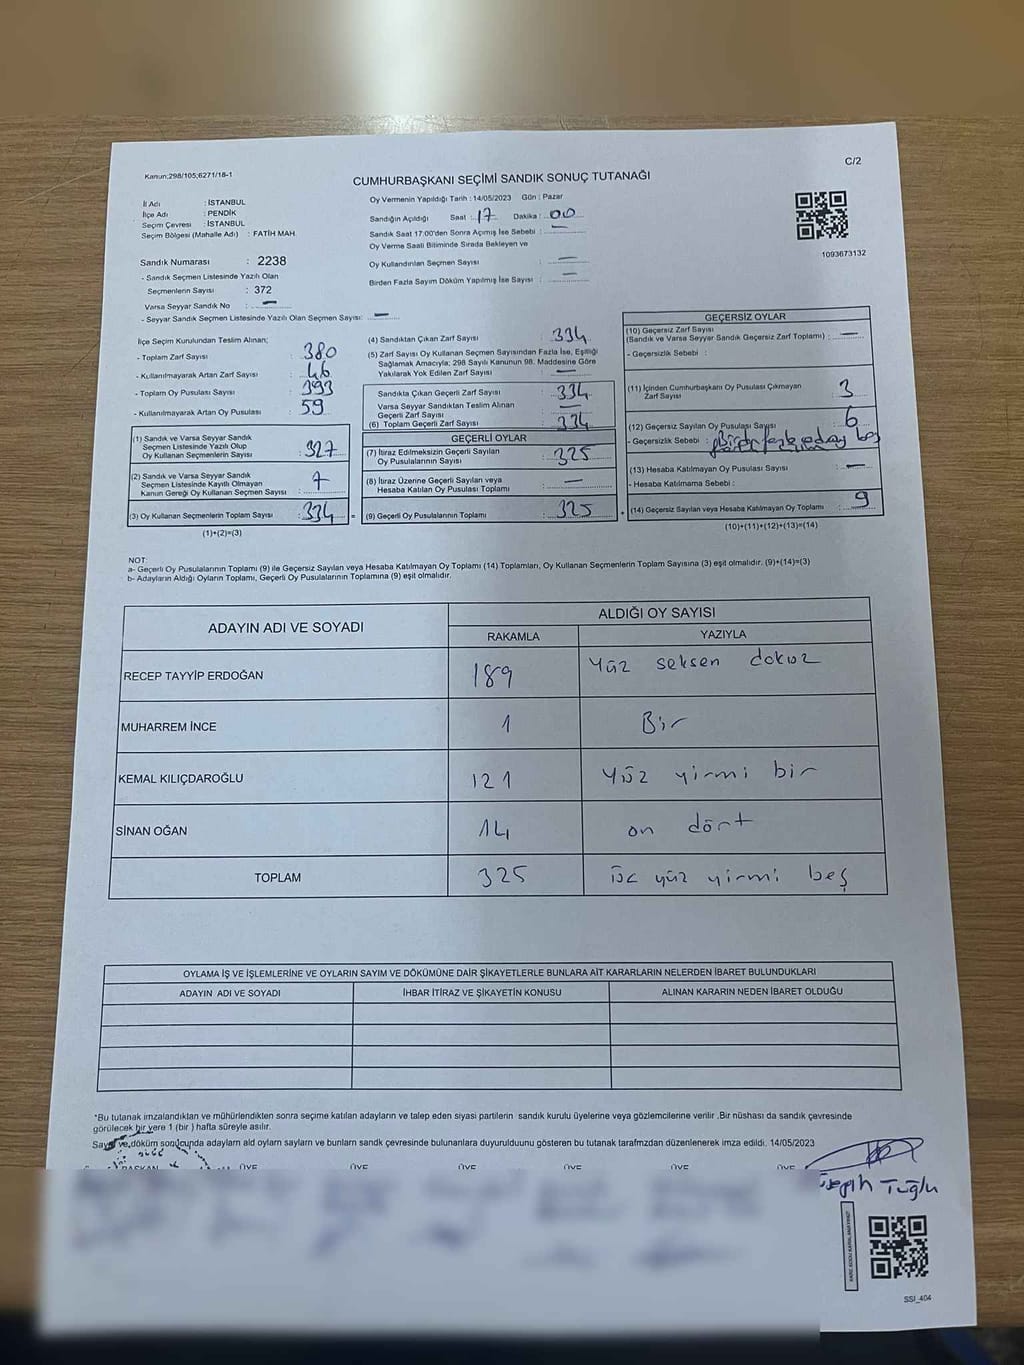 C/2
Kanun:298/105;6271/18-1
CUMHURBAŞKANI SEÇİMİ SANDIK SONUÇ TUTANAĞI
İl Adı : İSTANBUL
İlçe Adı : PENDİK
Seçim Çevresi : İSTANBUL
Seçim Bölgesi (Mahalle Adı) : FATİH MAH.
Sandık Numarası : 2238
- Sandık Seçmen Listesinde Yazılı Olan
Seçmenlerin Sayısı : 372
Varsa Seyyar Sandık No : —
- Seyyar Sandık Seçmen Listesinde Yazılı Olan Seçmen Sayısı: —
Oy Vermenin Yapıldığı Tarih : 14/05/2023 Gün : Pazar
Sandığın Açıldığı Saat : 17 Dakika : 00
Sandık Saat 17:00'den Sonra Açımış İse Sebebi : —
Oy Verme Saati Bitiminde Sırada Bekleyen ve
Oy Kullandırılan Seçmen Sayısı —
Birden Fazla Sayım Döküm Yapılmış İse Sayısı : —
1093673132
İlçe Seçim Kurulundan Teslim Alınan;
- Toplam Zarf Sayısı : 380
- Kullanılmayarak Artan Zarf Sayısı : 46
- Toplam Oy Pusulası Sayısı : 393
- Kullanılmayarak Artan Oy Pusulası : 59
(1) Sandık ve Varsa Seyyar Sandık
Seçmen Listesinde Yazılı Olup
Oy Kullanan Seçmenlerin Sayısı : 327
(2) Sandık ve Varsa Seyyar Sandık
Seçmen Listesinde Kayıtlı Olmayan
Kanun Gereği Oy Kullanan Seçmen Sayısı : 7
(3) Oy Kullanan Seçmenlerin Toplam Sayısı : 334 =
(1)+(2)=(3)
(4) Sandıktan Çıkan Zarf Sayısı : 334
(5) Zarf Sayısı Oy Kullanan Seçmen Sayısından Fazla İse, Eşitliği
Sağlamak Amacıyla; 298 Sayılı Kanunun 98. Maddesine Göre
Yakılarak Yok Edilen Zarf Sayısı : —
Sandıkta Çıkan Geçerli Zarf Sayısı : 334
Varsa Seyyar Sandıktan Teslim Alınan
Geçerli Zarf Sayısı : —
(6) Toplam Geçerli Zarf Sayısı : 334
GEÇERLİ OYLAR
(7) İtiraz Edilmeksizin Geçerli Sayılan
Oy Pusulalarının Sayısı : 325
(8) İtiraz Üzerine Geçerli Sayılan veya
Hesaba Katılan Oy Pusulası Toplamı : —
(9) Geçerli Oy Pusulalarının Toplamı : 325 +
GEÇERSİZ OYLAR
(10) Geçersiz Zarf Sayısı
(Sandık ve Varsa Seyyar Sandık Geçersiz Zarf Toplamı) : —
- Geçersizlik Sebebi :
(11) İçinden Cumhurbaşkanı Oy Pusulası Çıkmayan
Zarf Sayısı : 3
(12) Geçersiz Sayılan Oy Pusulası Sayısı : 6
- Geçersizlik Sebebi :
(13) Hesaba Katılmayan Oy Pusulası Sayısı : —
- Hesaba Katılmama Sebebi :
(14) Geçersiz Sayılan veya Hesaba Katılmayan Oy Toplamı : 9
(10)+(11)+(12)+(13)=(14)
NOT:
a- Geçerli Oy Pusulalarının Toplamı (9) ile Geçersiz Sayılan veya Hesaba Katılmayan Oy Toplamı (14) Toplamları, Oy Kullanan Seçmenlerin Toplam Sayısına (3) eşit olmalıdır. (9)+(14)=(3)
b- Adayların Aldığı Oyların Toplamı, Geçerli Oy Pusulalarının Toplamına (9) eşit olmalıdır.
ADAYIN ADI VE SOYADI ALDIĞI OY SAYISI
RAKAMLA YAZIYLA
RECEP TAYYİP ERDOĞAN 189 Yüz seksen dokuz
MUHARREM İNCE 1 Bir
KEMAL KILIÇDAROĞLU 121 Yüz yirmi bir
SİNAN OĞAN 14 on dört
TOPLAM 325 üç yüz yirmi beş
OYLAMA İŞ VE İŞLEMLERİNE VE OYLARIN SAYIM VE DÖKÜMÜNE DAİR ŞİKAYETLERLE BUNLARA AİT KARARLARIN NELERDEN İBARET BULUNDUKLARI
ADAYIN ADI VE SOYADI İHBAR İTİRAZ VE ŞİKAYETİN KONUSU ALINAN KARARIN NEDEN İBARET OLDUĞU
*Bu tutanak imzalandıktan ve mühürlendikten sonra seçime katılan adayların ve talep eden siyasi partilerin sandık kurulu üyelerine veya gözlemcilerine verilir .Bir nüshası da sandık çevresinde
görülecek bir yere 1 (bir ) hafta süreyle asılır.
Sayım ve döküm sonucunda adayların ald oyların sayların ve bunların sandık çevresinde bulunanlara duyurulduunu gösteren bu tutanak tarafmzdan düzenlenerek imza edildi. 14/05/2023
BAŞKAN ÜYE ÜYE ÜYE ÜYE ÜYE ÜYE
Tuğlu
SSI_404